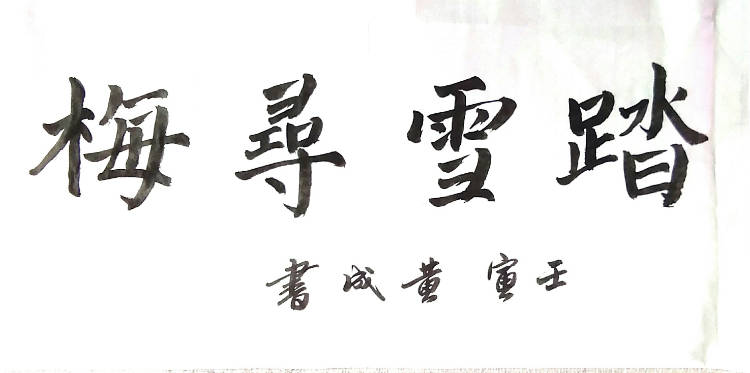 踏雪尋梅
壬寅黄成書